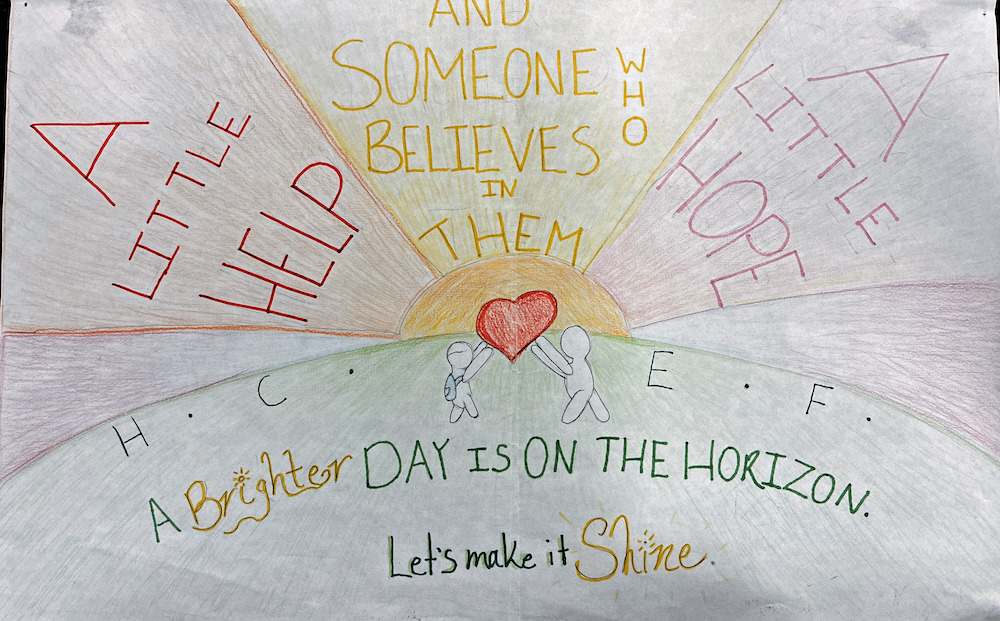 A
LITTLE
HELP
AND
SOMEONE
WHO
BELIEVES
IN
THEM
A
LITTLE
HOPE
H. C. E. F.
A Brighter DAY IS ON THE HORIZON.
Let's make it Shine.